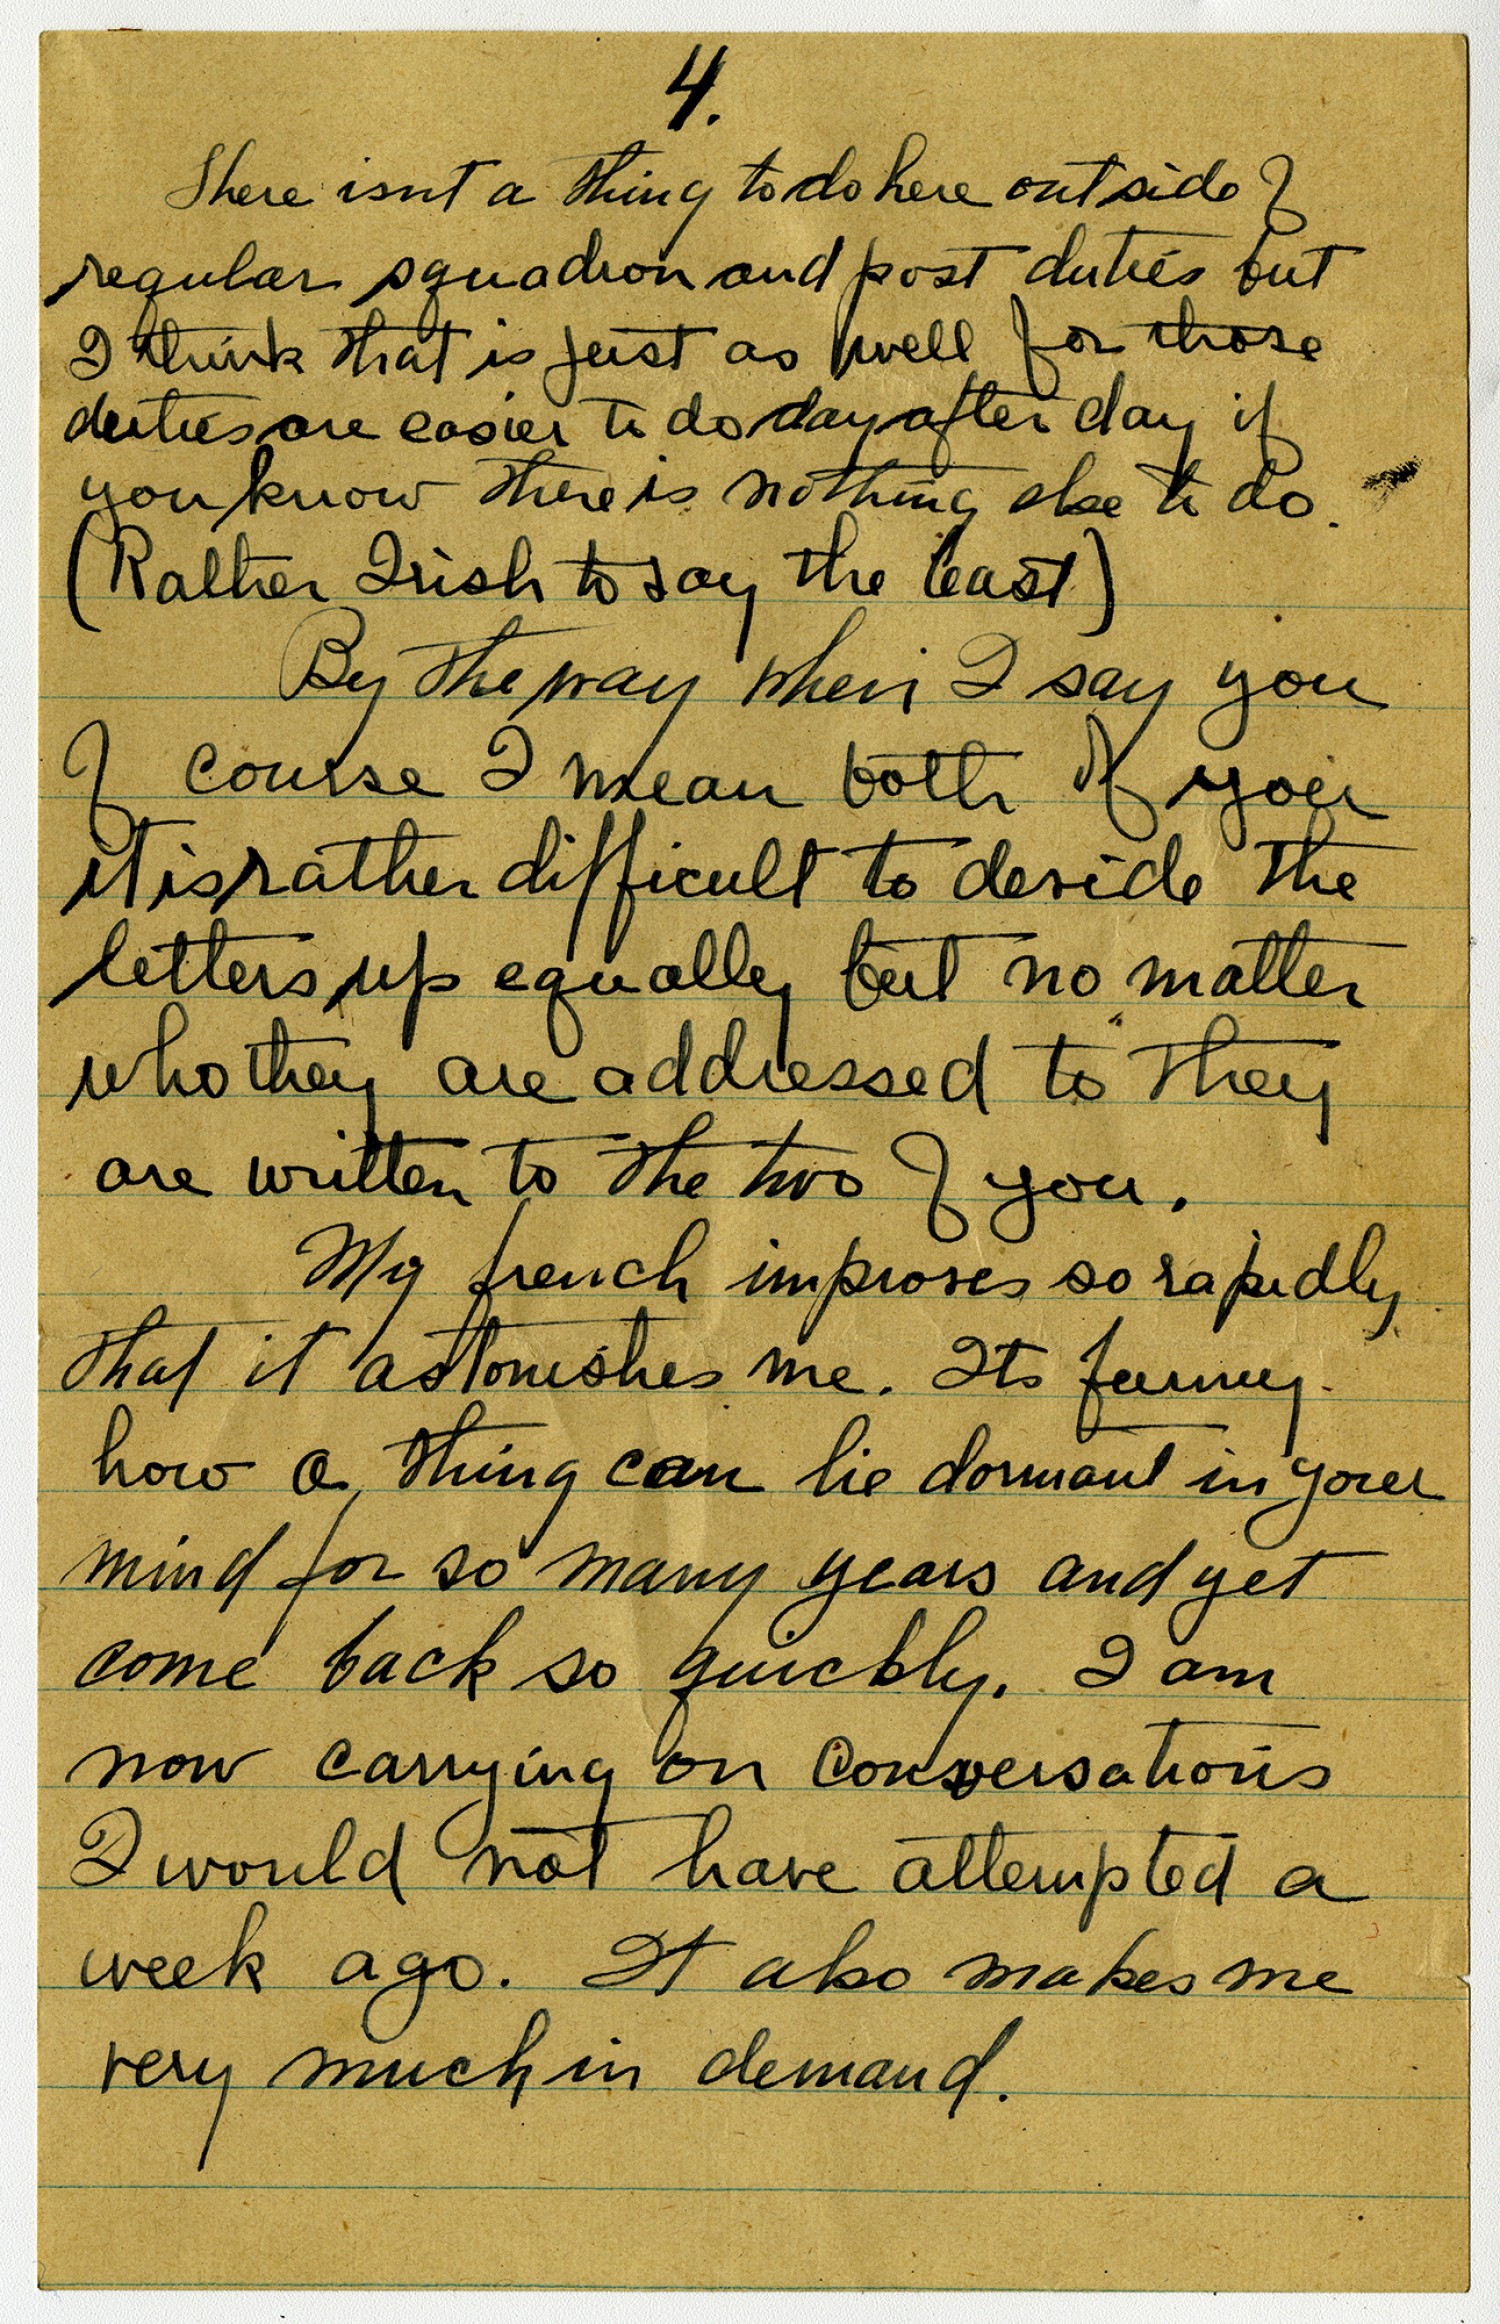 4.
There isnt a thing to do here outside of
regular squadron and post duties but
I think that is just as well for those
duties are easier to do day after day if
you know there is nothing else to do.
(Rather Irish to say the least)
By the way when I say you
of course I mean both of you
it is rather difficult to devide the
letters up equally but no matter
who they are addressed to they
are written to the two of you.
My french improves so rapidly
that it astonishes me. Its funny
how a thing can lie dormant in your
mind for so many years and yet
come back so quickly. I am
now carrying on conversations
I would not have attempted a
week ago. It also makes me
very much in demand.